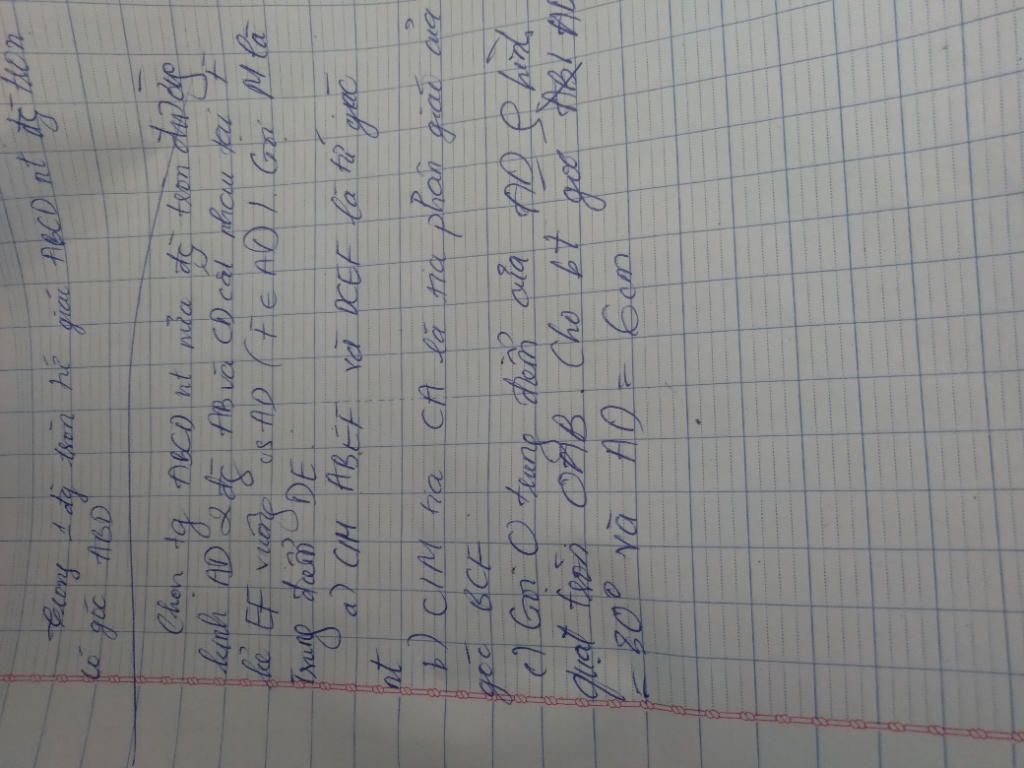 trong 1 đg tròn hế giác ABCD nt đg tròn
có góc ABD
Chon tg ABCD nt nửa đg tròn đường
kính AD 2 đg AB và CD cắt nhau tại E
kẻ EF vuông vs AD (F ∈ AD). Gọi M là
Trung điểm DE
a) CM ABEF và DCEF là tứ giác
nt
b) CIM tia CA là tia phân giác của
góc BCF
c) Gọi O trung điểm của AD
quạt tròn OAB. Cho bt góc
= 30° và AD = 6cm